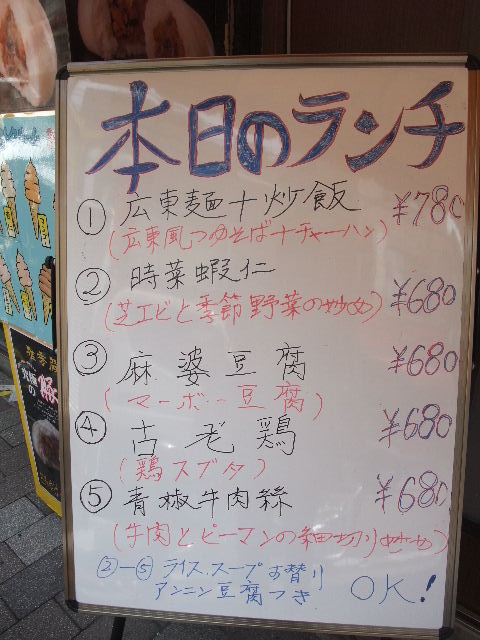 本日のランチ
① 広東麺+炒飯 ¥780
(広東風つゆそば+チャーハン)
② 時菜蝦仁
(芝エビと季節野菜の炒め) ¥680
③ 麻婆豆腐 ¥680
(マーボー豆腐)
④古老鶏 ¥680
(鶏スブタ)
⑤ 青椒牛肉絲 ¥680
(牛肉とピーマンの細切り炒め)
②-⑤ ライス.スープお替り
アンニン豆腐つき OK!